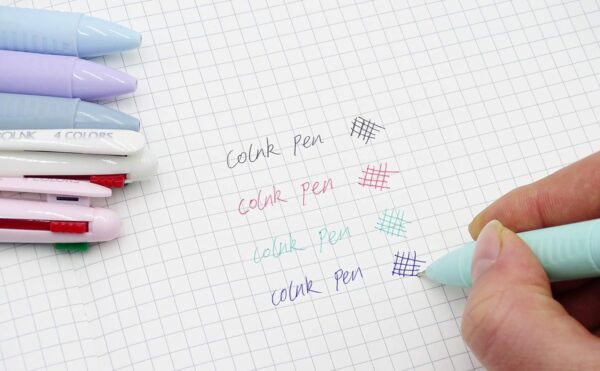 OLNK 4 COLORS
Colnk Pen
Colnk Pen
Colnk Pen
Colnk Pen